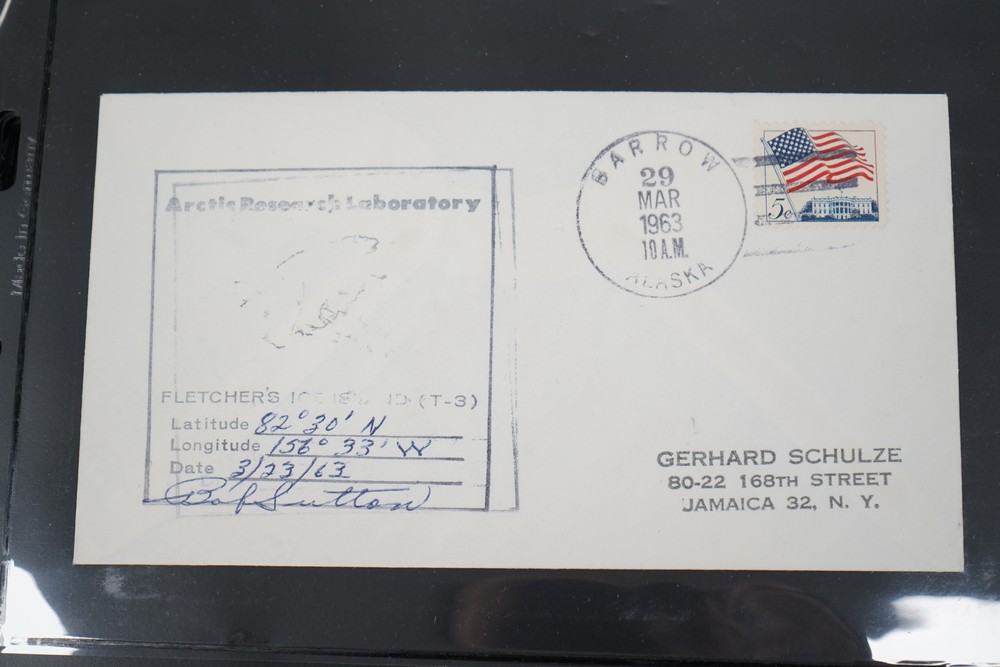 Arctic Research Laboratory
FLETCHER'S ICE ISLAND (T-3)
Latitude 82° 30' N
Longitude 156° 33' W
Date 3/23/63
Bob Sutton
BARROW
29
MAR
1963
10 A.M.
ALASKA
5c
GERHARD SCHULZE
80-22 168TH STREET
JAMAICA 32, N. Y.
Made in Germany